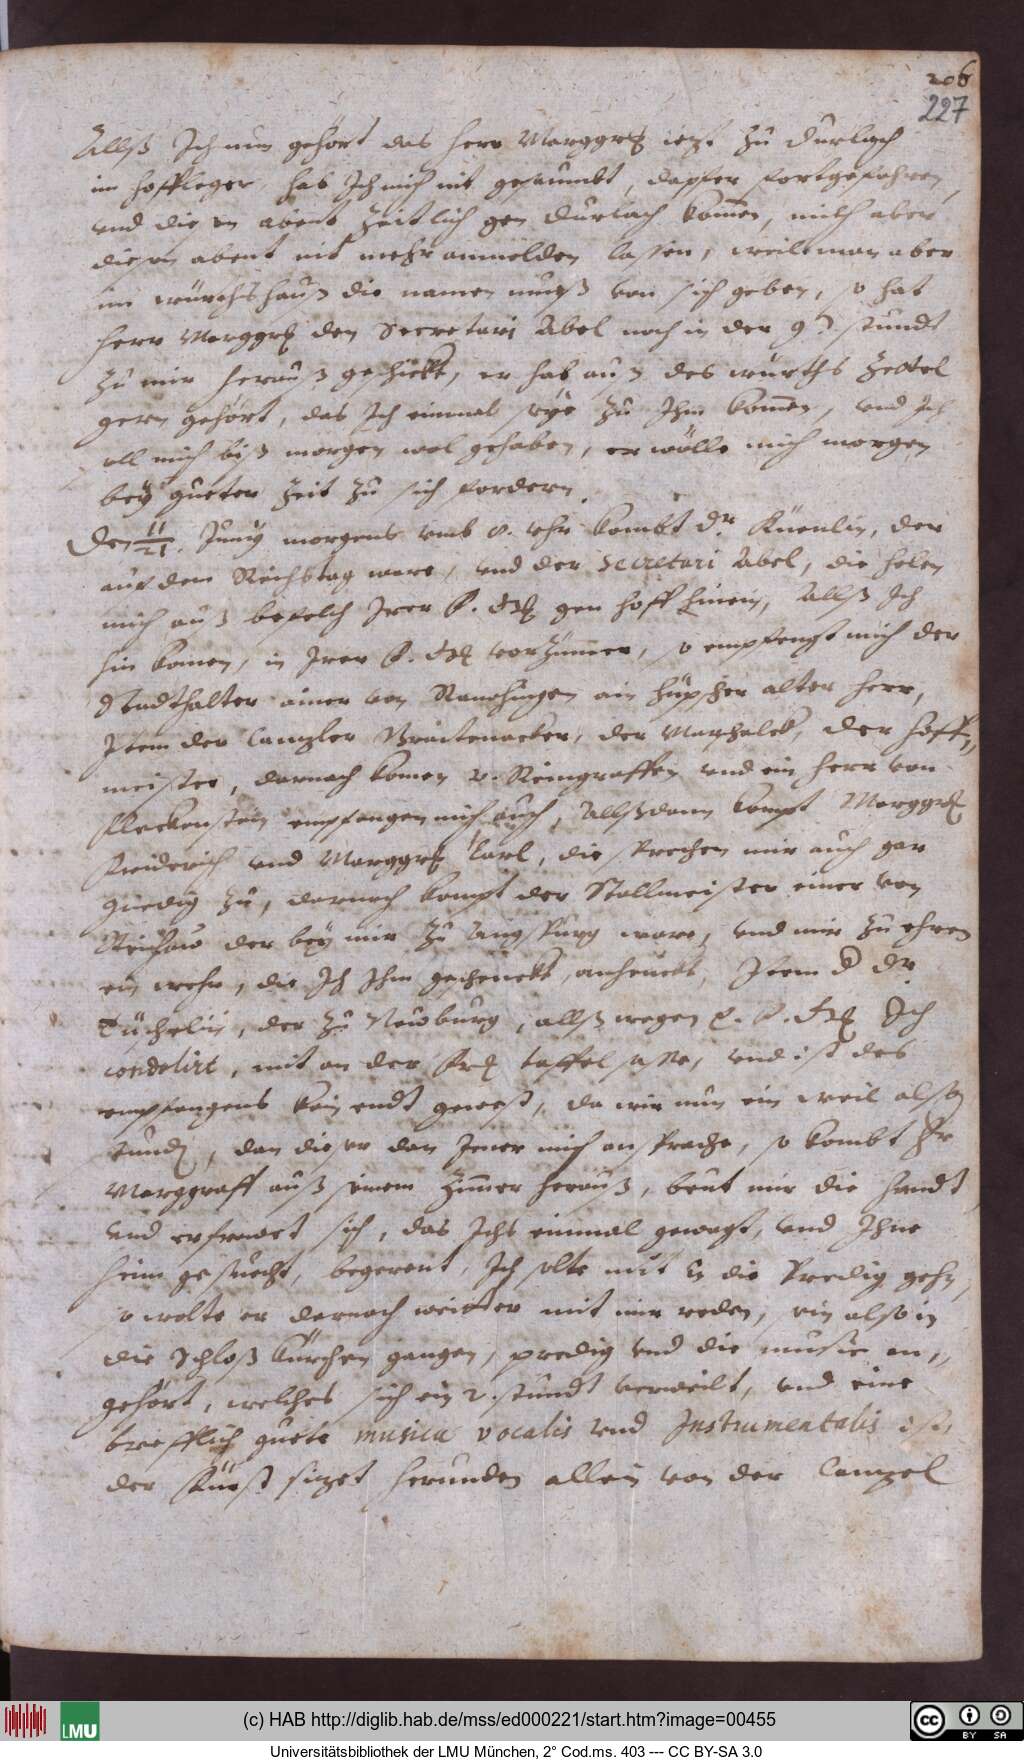 206
227
Allß Ich nun gehört das herr Marggrf ietzt zu Durlach
im hoffleger, hab Ich mich nit gesaumbt, dapfer fortgefahren,
und disen abent zeitlich gen Durlach komen, mich aber
disen abent nit mehr anmelden lassen, weil man aber
im würthshauß die namen mueß von sich geben, so hat
herr Marggrf den Secretari Abel noch in der 9. stundt
zu mir herauß geschickt, er hab auß des würths Zettel
gern gehört, das Ich einmal seye zu Ihm komen, und Ich
soll mich biß morgen wol gehaben, er wölle mich morgen
bey gueter Zeit zu sich fordern.
Den 11/21. Junij morgens umb 8. uhr kombt Dr. Küenlin, der
auf dem Reichstag ware, und der Secretari Abel, die holen
mich auß befelch Irer F. Gn gen hoff hinein, Allß Ich
hin komen, in Irer F. Gn vorzimmer, so empfengt mich der
Stadthalter einer von Remchingen ein hüpscher alter herr,
Item der Canzler Broitenacker, der Marschalck, der hoff-
meister, darnach komen 2. Reingraffen und ein herr von
Fleckenstein empfangen mich auch, Allßdann kompt Marggrf
Friderich und Marggrf Carl, die sprechen mir auch gar
gnedig zu, darnach kompt der Stallmeister einer von
der bey mir zu Augspurg ware, und mir zu ehren
ein wehr, die Ich Ihm geschenckt, anhenckt, Item Dr.
der zu Newburg, allß wegen F. Gn Ich
condolirt, mit an der Frl taffel sasse, und ist des
empfangens kein endt gewest, da wir nun ein weil also
stundn, dan diser dan Jener mich ansprache, so kombt Hr
Marggraff auß seinem Zimmer herauß, beut mir die handt
und erfrewet sich, das Ichs einmal gewagt, und Ihne
heim gesuecht, begerent, Ich solte mit In die Predig gehn,
so wolte er darnach weitter mit mir reden, sein also in
die Schloß Kürchen gangen, predig und die music an-
gehört, welches sich ein 2. stundt verweilt, und eine
trefflich guete musica vocalis und Instrumentalis ist,
der Fürst sizet herunden allein von der Canzel
(c) HAB http://diglib.hab.de/mss/ed000221/start.htm?image=00455
LMU
cc BY SA
Universitätsbibliothek der LMU München, 2° Cod.ms. 403 --- CC BY-SA 3.0